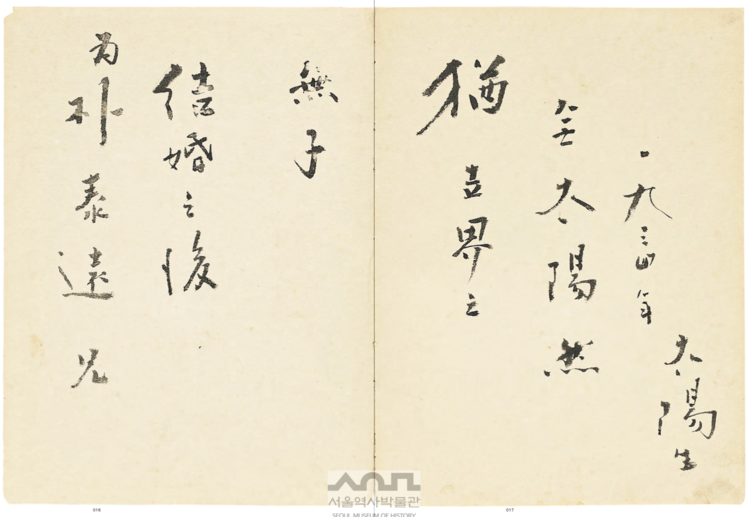 为
朴泰遠兄
結婚之後
無子
猶
世界之
無太陽然
一九三四年
太陽生
서울역사박물관
SEOUL MUSEUM OF HISTORY
016
017